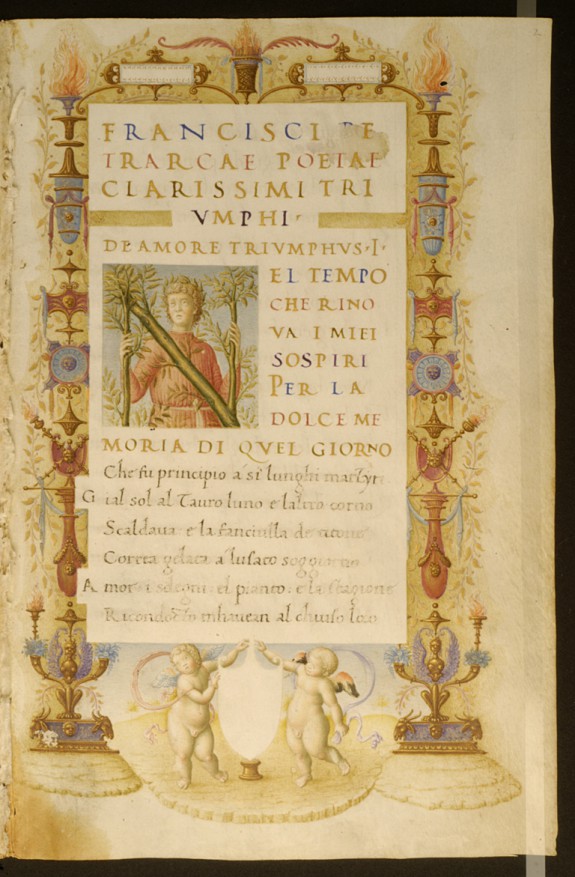 2
FRANCISCI PE
TRARCAE POETAE
CLARISSIMI TRI
VMPHI·
DE AMORE TRIVMPHVS·I·
N
EL TEMPO
CHE RINO
VA I MIEI
SOSPIRI
PER LA
DOLCE ME
MORIA DI QVEL GIORNO
Che fu principio a si lunghi martyri
Gia il sol al Tauro luno e laltro corno
Scaldaua e la fanciulla de titone
Correa gelata a lusato soggiorno
Amor i sdegni el pianto e la stagione
Ricondocto mhauean al chiuso loco